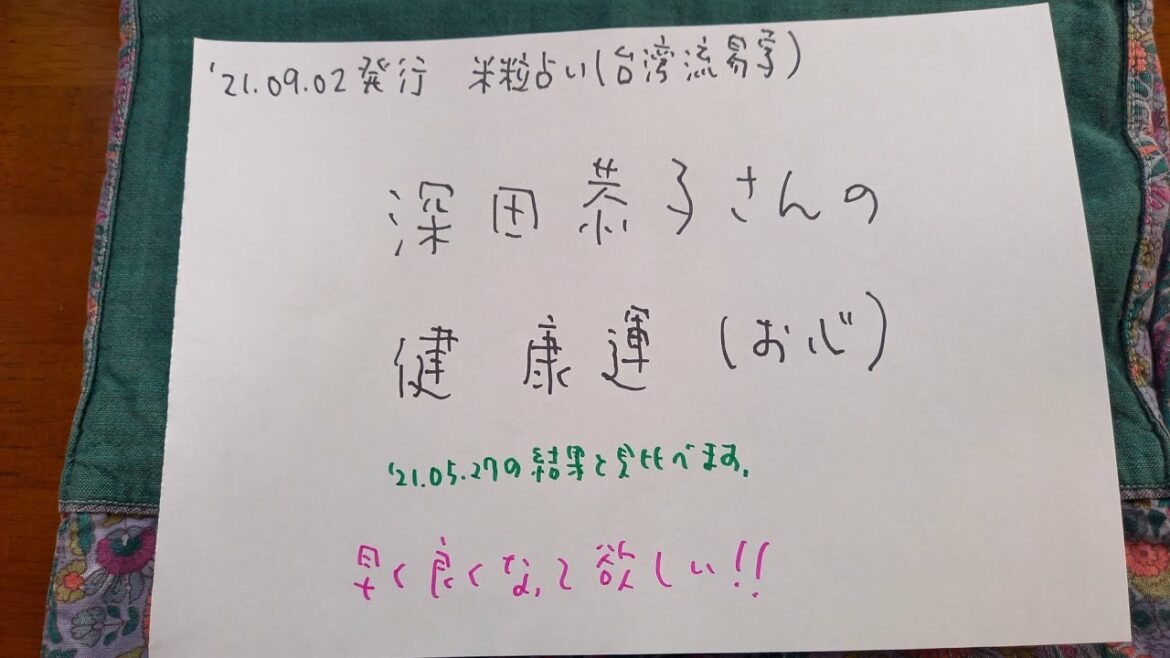 '21.09.02発行 米粒占い(台湾流易学)
深田恭子さんの
健康運(お心)
'21.05.27の結果と見比べます。
早く良くなって欲しい!!